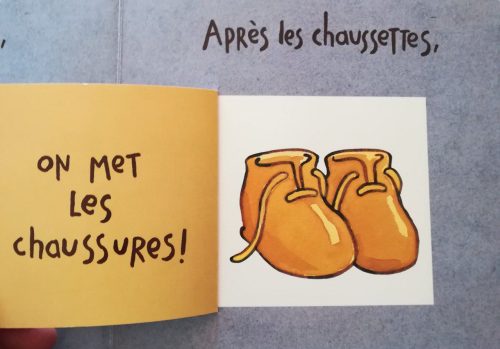 Après les chaussettes,
on met
les
chaussures!